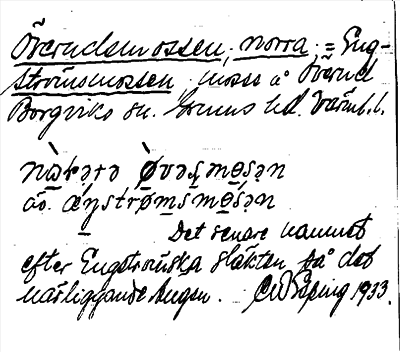 Överudsmossen, norra = Eng-
strömsmossen. mosse å Överud
Borgviks sn. Grums hd. Värml. l.
nὼrərə ø̀vəʂmo̱sən
äv. æŋstrø̱msmo̱sən
Det senare namnet
efter Engströmska släkten på det
närliggande Augen. C W Röping 1933.